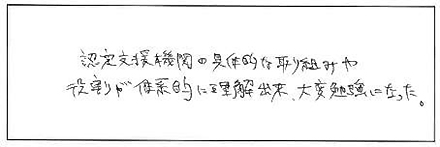 認定支援機関の具体的な取り組みや
役割が体系的に理解出来、大変勉強になった。